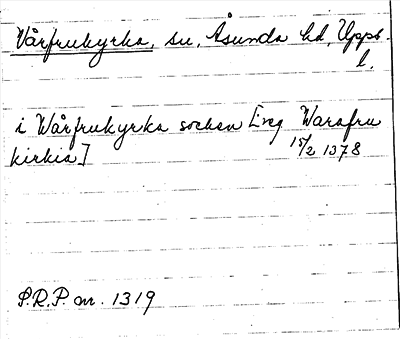 Vårfrukyrka, sn, Åsunda hd, Upps.
l.
i Wårfrukyrka socken [reg Warafru
kirkia] 15/2 1378
S.R.P. nr. 1319